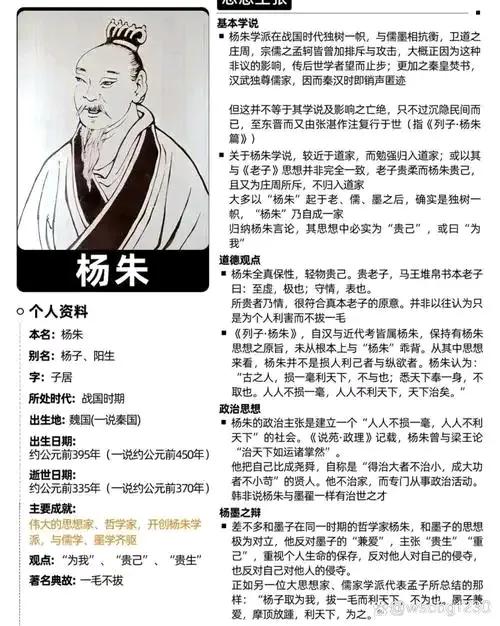 思想主张
基本学说
杨朱学派在战国时代独树一帜，与儒墨相抗衡，卫道之
庄周，宗儒之孟轲皆曾加排斥与攻击，大概正因为这种
非议的影响，传后世学者望而止步；更加之秦皇焚书，
汉武独尊儒家，因而秦汉时即销声匿迹
但这并不等于其学说及影响之亡绝，只不过沉隐民间而
已，至东晋而又由张湛作注复行于世（指《列子·杨朱
篇》）
关于杨朱学说，较近于道家，而勉强归入道家；或以其
与《老子》思想并非完全一致，老子贵柔而杨朱贵己，
且又为庄周所斥，不归入道家
大多以“杨朱”起于老、儒、墨之后，确实是独树一
帜，“杨朱”乃自成一家
归纳杨朱言论，其思想中必实为“贵己”，或曰“为
我”
道德观点
杨朱全真保性，轻物贵己。贵老子，马王堆帛书本老子
曰：至虚，极也；守情，表也。
所贵者乃情，很符合真本老子的原意。并非以往认为只
是为个人利害而不拔一毛
《列子·杨朱》，自汉与近代考皆属杨朱，保持有杨朱
思想之原旨，未从根本上与“杨朱”乖背。从其中思想
来看，杨朱并不是损人利己者与纵欲者。杨朱认为：
“古之人，损一毫利天下，不与也；悉天下奉一身，不
取也。人人不损一毫，人人不利天下，天下治矣。”
政治思想
杨朱的政治主张是建立一个“人人不损一毫，人人不利
天下”的社会。《说苑·政理》记载，杨朱曾与梁王论
“治天下如运诸掌然”。
他把自己比成尧舜，自称是“得治大者不治小，成大功
者不小苛”的贤人。他不治家，而专门从事政治活动。
韩非说杨朱与墨翟一样有治世之才
杨墨之辩
差不多和墨子在同一时期的哲学家杨朱，和墨子的思想
极为对立，他反对墨子的“兼爱”，主张“贵生”“重
己”，重视个人生命的保存，反对他人对自己的侵夺，
也反对自己对他人的侵夺。
正如另一位大思想家、儒家学派代表孟子所总结的那
样：“杨子取为我，拔一毛而利天下，不为也。墨子兼
爱，摩顶放踵，利天下，为之。”
杨朱
个人资料
本名：杨朱
别名：杨子、阳生
字：子居
所处时代：战国时期
出生地：魏国(一说秦国)
出生日期：
约公元前395年（一说约公元前450年）
逝世日期：
约公元前335年（一说约公元前370年）
主要成就：
伟大的思想家、哲学家，开创杨朱学
派，与儒学、墨学齐驱
观点：“为我”、“贵己”、“贵生”
著名典故：一毛不拔